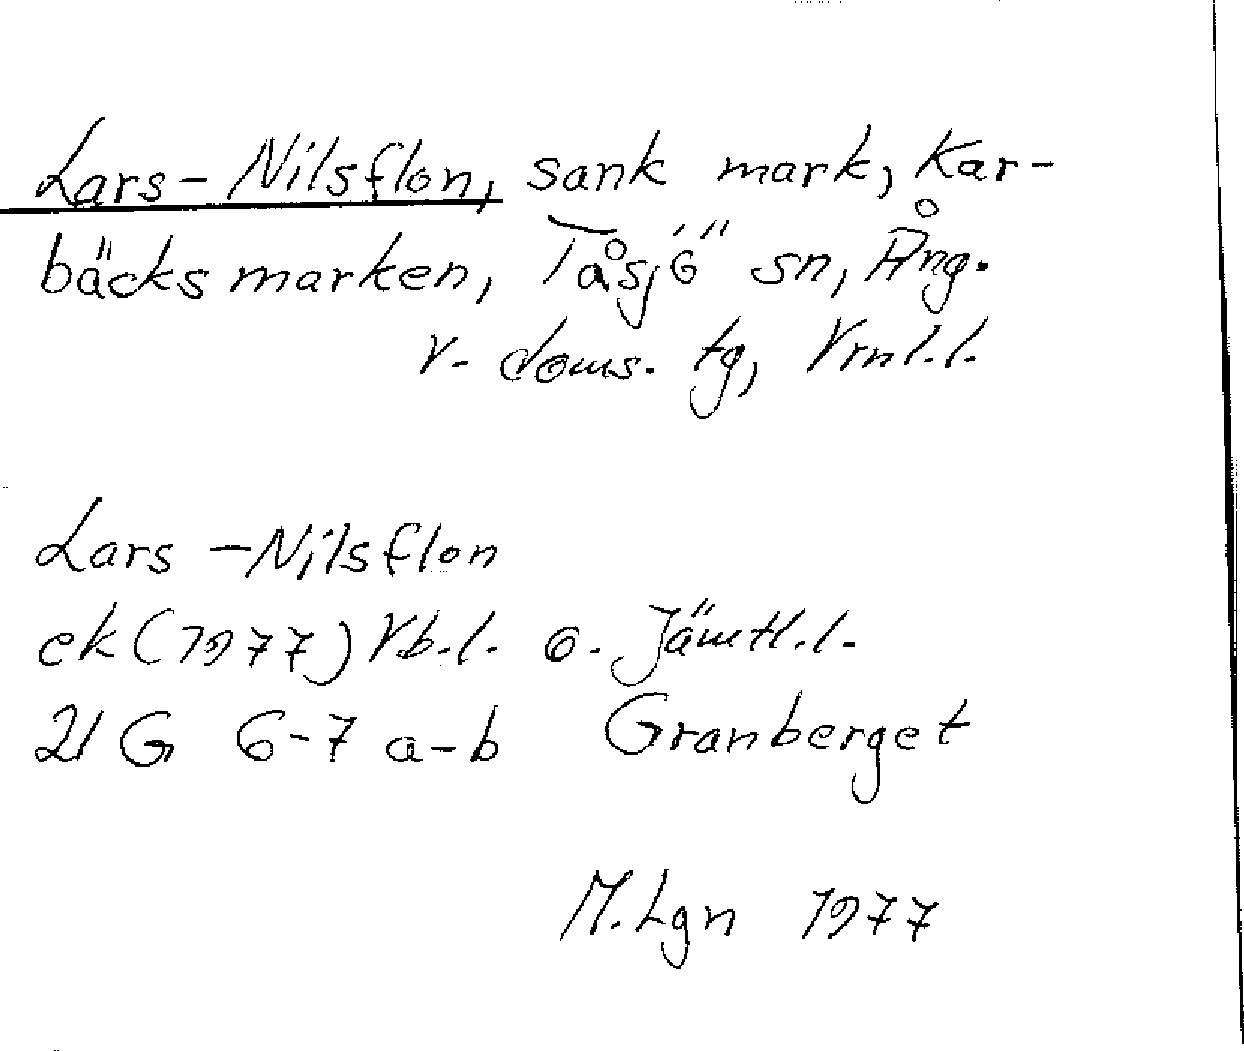 Lars-Nilsflon, sank mark, Kar-
bäcksmarken, Tåsjö sn, Ång.
V. doms. tg, Vrnl.l.
Lars-Nilsflon
ek (1977) Vb.l. o. Jämtl.l.
21 G 6-7 a-b Granberget
M.Lgn 1977